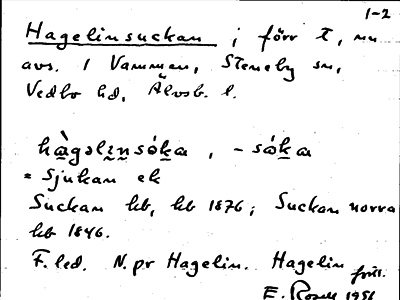 1-2
Hagelinsuckan, i förr t, nu
avs. i Vammen, Steneby sn,
Vedbo hd, Älvsb. l.
hàgəlinsóka, -sóka
= Sjukan ek
Suckan hb, hb 1876; Suckan norra
hb 1846.
F. led. N. pr Hagelin. Hagelin förr.
E. Rosell 1956